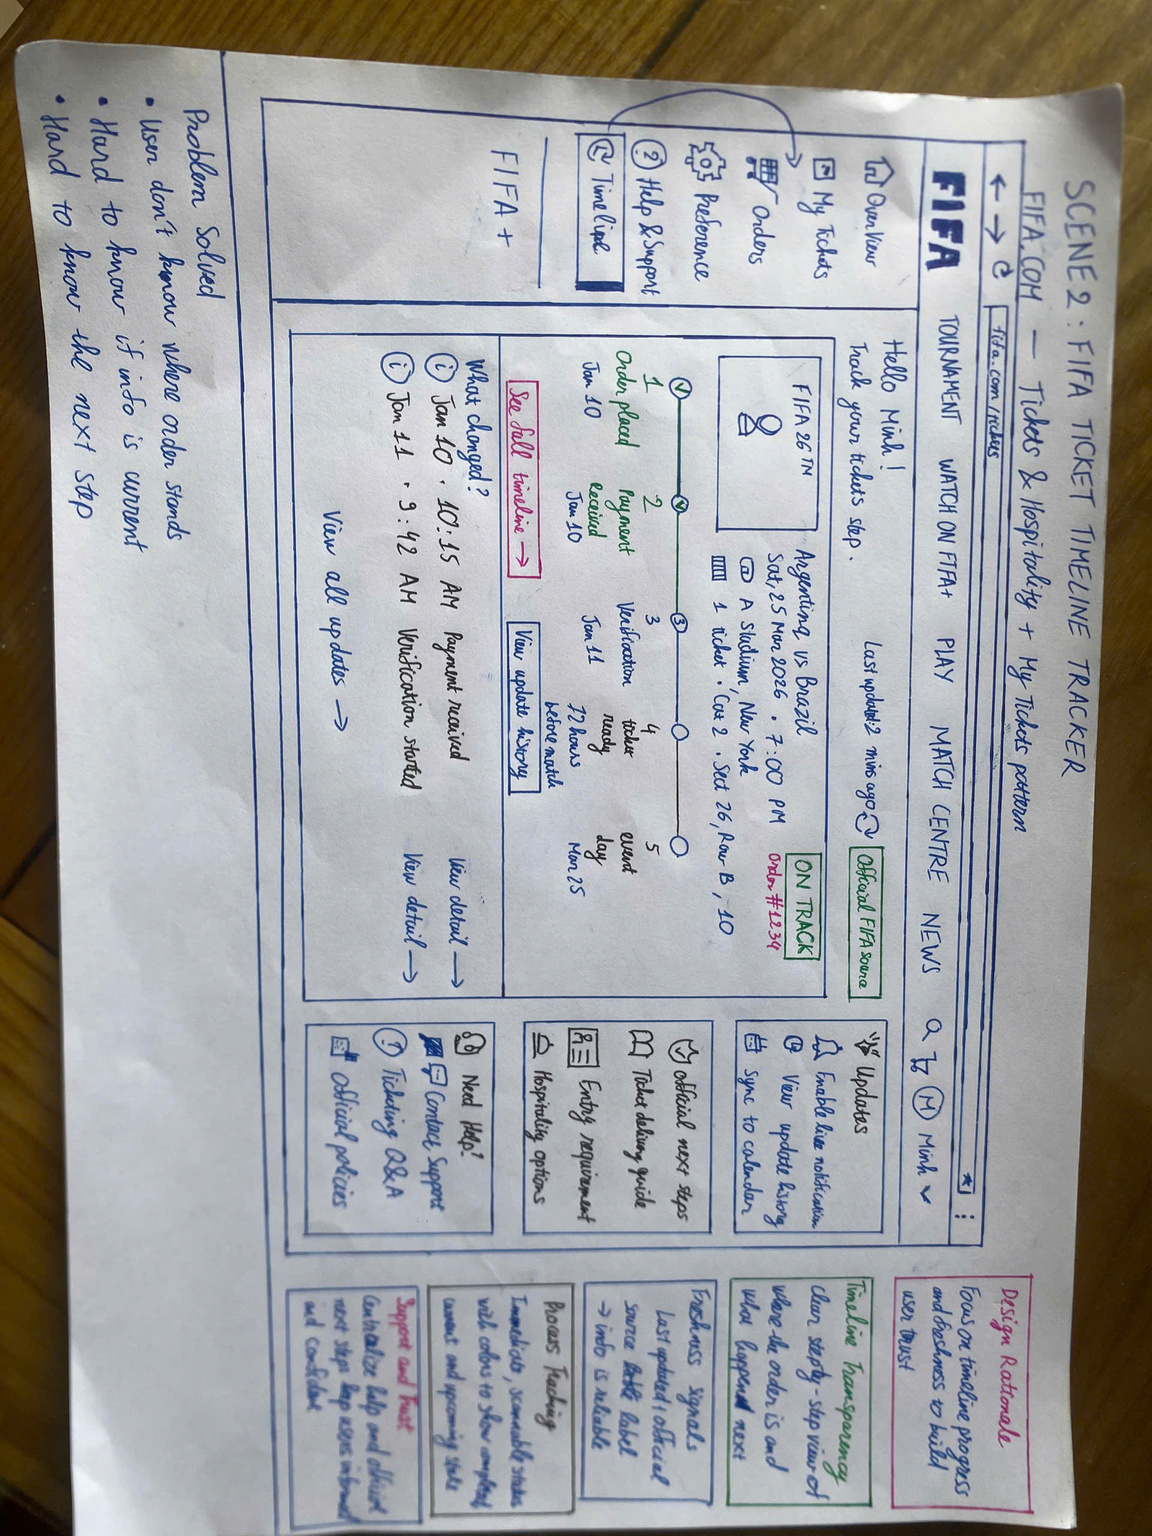 SCENE 2 : FIFA TICKET TIMELINE TRACKER
FIFA.COM — Tickets & Hospitality + My Tickets pattern
fifa.com/tickets
FIFA TOURNAMENT WATCH ON FIFA+ PLAY MATCH CENTRE NEWS M Minh
OverView
My Tickets
Orders
Preference
? Help & Support
Timeline
FIFA +
Hello Minh!
Track your tickets step.
Last updated: 2 mins ago
Official FIFA source
FIFA 26™
Argentina vs Brazil
Sat, 25 Mar 2026 . 7:00 PM
A Studium, New York
1 ticket . Cat 2 . Sect 26, Row B, 10
ON TRACK
Order #1234
3
1
Order placed
Jan 10
2
Payment
Received
Jan 10
3
Verification
Jan 11
4
ticket
ready
72 hours
before match
5
event
day
Mar 25
See full timeline →
View update history
What changed?
i Jan 10 . 10:15 AM Payment received View detail →
i Jan 11 . 9:42 AM Verification started View detail →
View all updates →
Updates
Enable live notification
View update history
Sync to calendar
official next steps
Ticket delivery guide
Entry requirement
Hospitality options
Need Help?
Contact Support
Ticketing Q&A
official policies
Design Rationale
Focus on timeline progress
and freshness to build
user trust
Timeline Transparency
clear step by-step view of
where the order is and
what happend next
Freshness signals
Last updated, official
source label
→ info is reliable
Process Tracking
Immediate, scannable states
with colors to show completed
current and upcoming state
Support and Trust
Centralize help and official
next steps keep users informed
and confident
Problem Solved
• User don't know where order stands
• Hard to know if info is current
• Hard to know the next step